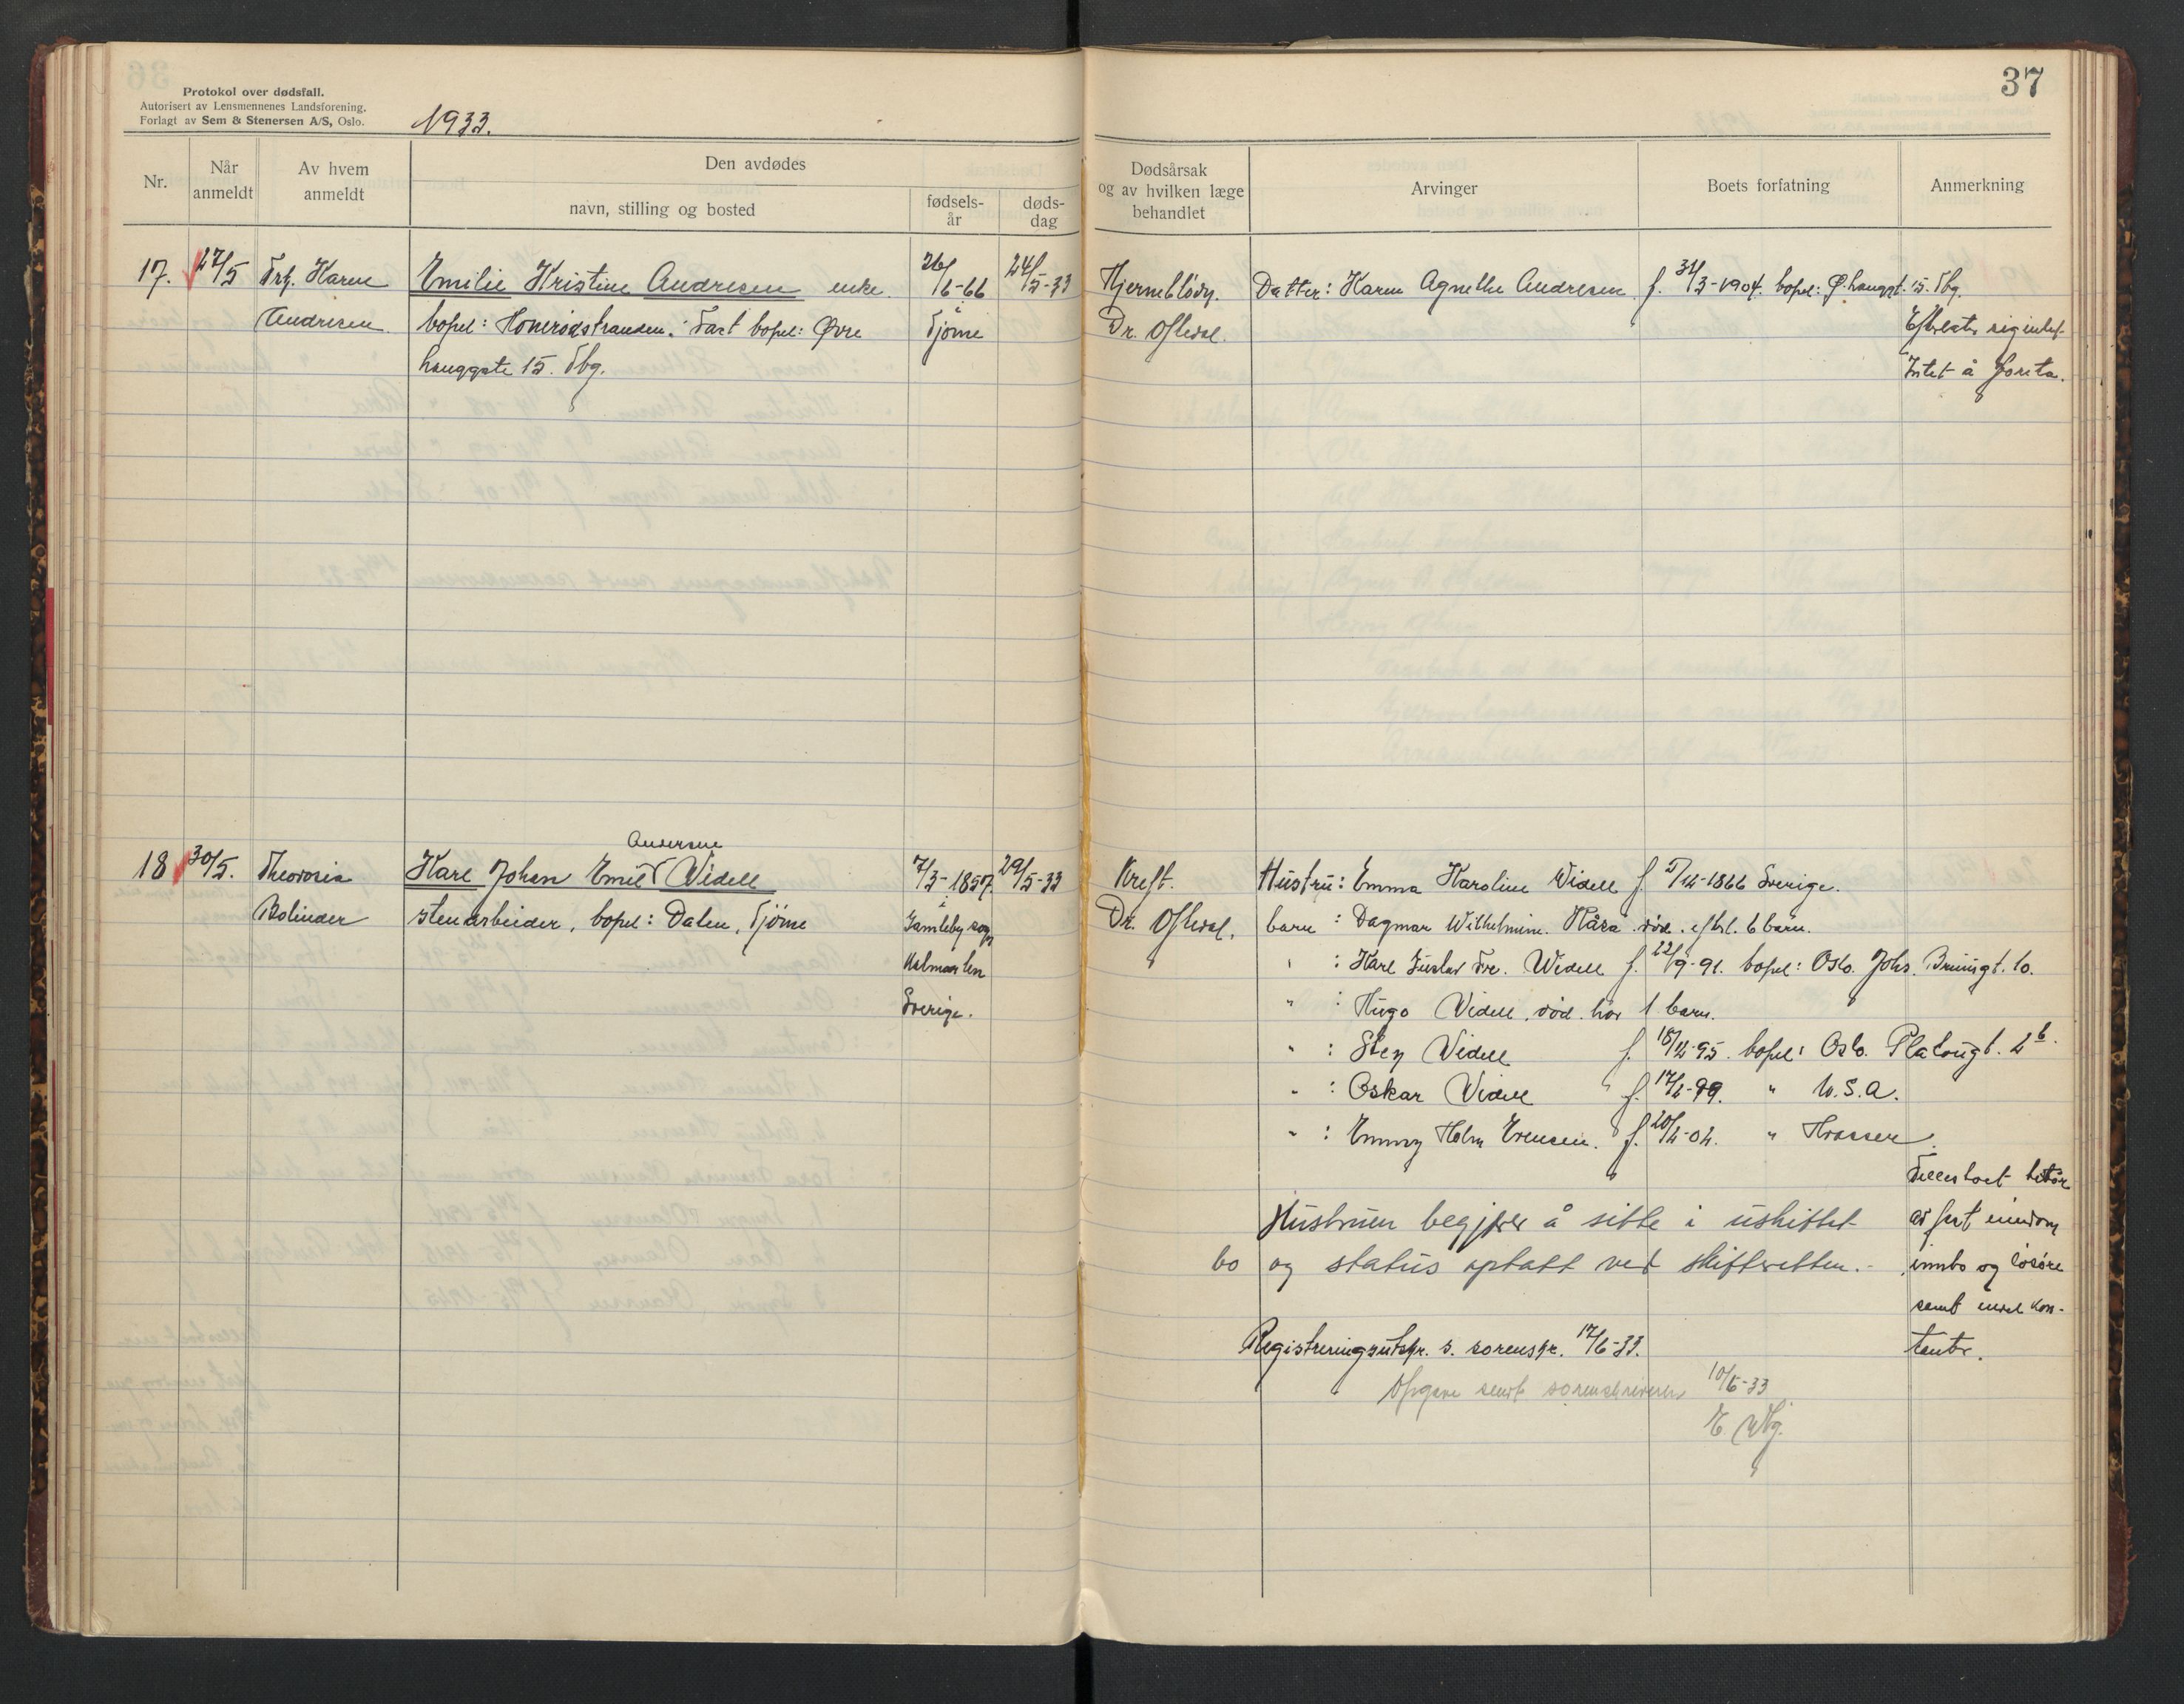 Protokol over dødsfall.
Autorisert av Lensmennenes Landsforening.
Forlagt av Sem & Stenersen A/S, Oslo.
1933.
37
Nr.
Når anmeldt
Av hvem anmeldt
Den avdødes
navn, stilling og bosted
fødsels-år
døds-dag
Dødsårsak og av hvilken læge behandlet
Arvinger
Boets forfatning
Anmerkning
17. 27/5 Frk. Karen Emilie Kristine Andresen enke. 26/6-66 24/5-33 Hjerneblødn. Datter: Karen Agnethe Andresen f. 31/3-1904. bopel: Ø. Langgt. 15. Tbg.
Andresen bopel: Honerødstranden. Fast bopel: Øvre Tjøme Dr. Oftedal. Efterlater sig intet.
Langgate 15. Tbg. Intet å foreta.
Andersen
18 30/5. Theodosia Karl Johan Emil Videll 7/3-1857. 29/5-33 Kreft. Hustru: Emma Karoline Widell f. 5/12-1866 Sverige.
Bolinder stenarbeider, bopel: Dalen, Tjöme i Gamleby sogn Dr. Oftedal. barn: Dagmar Wilhelmine Kåsa død. efterl. 6 barn.
Kalmar len " : Karl Gustav Fre. Widell f. 22/9-91. bopel: Oslo. Johs. Bruungt. 10.
Sverige. " : Hugo Videll, død. har 1 barn.
" : Sten Videll f. 18/12-95. bopel: Oslo. Platougt. 2b.
" : Oskar Videll f. 17/2-99. " U.S.A.
" : Emmy Holm Evensen. f. 20/2-02. " Hvasser.
Fellesboet består
Hustruen begjærer å sitte i uskiftet av fast eiendom
bo og status optatt ved skifteretten. - innbo og løsøre
samt endel kon-
Registreringsutskr. s. sorenskr. 17/6-33. tanter.
Opgave sendt sorenskriveren 10/6-33